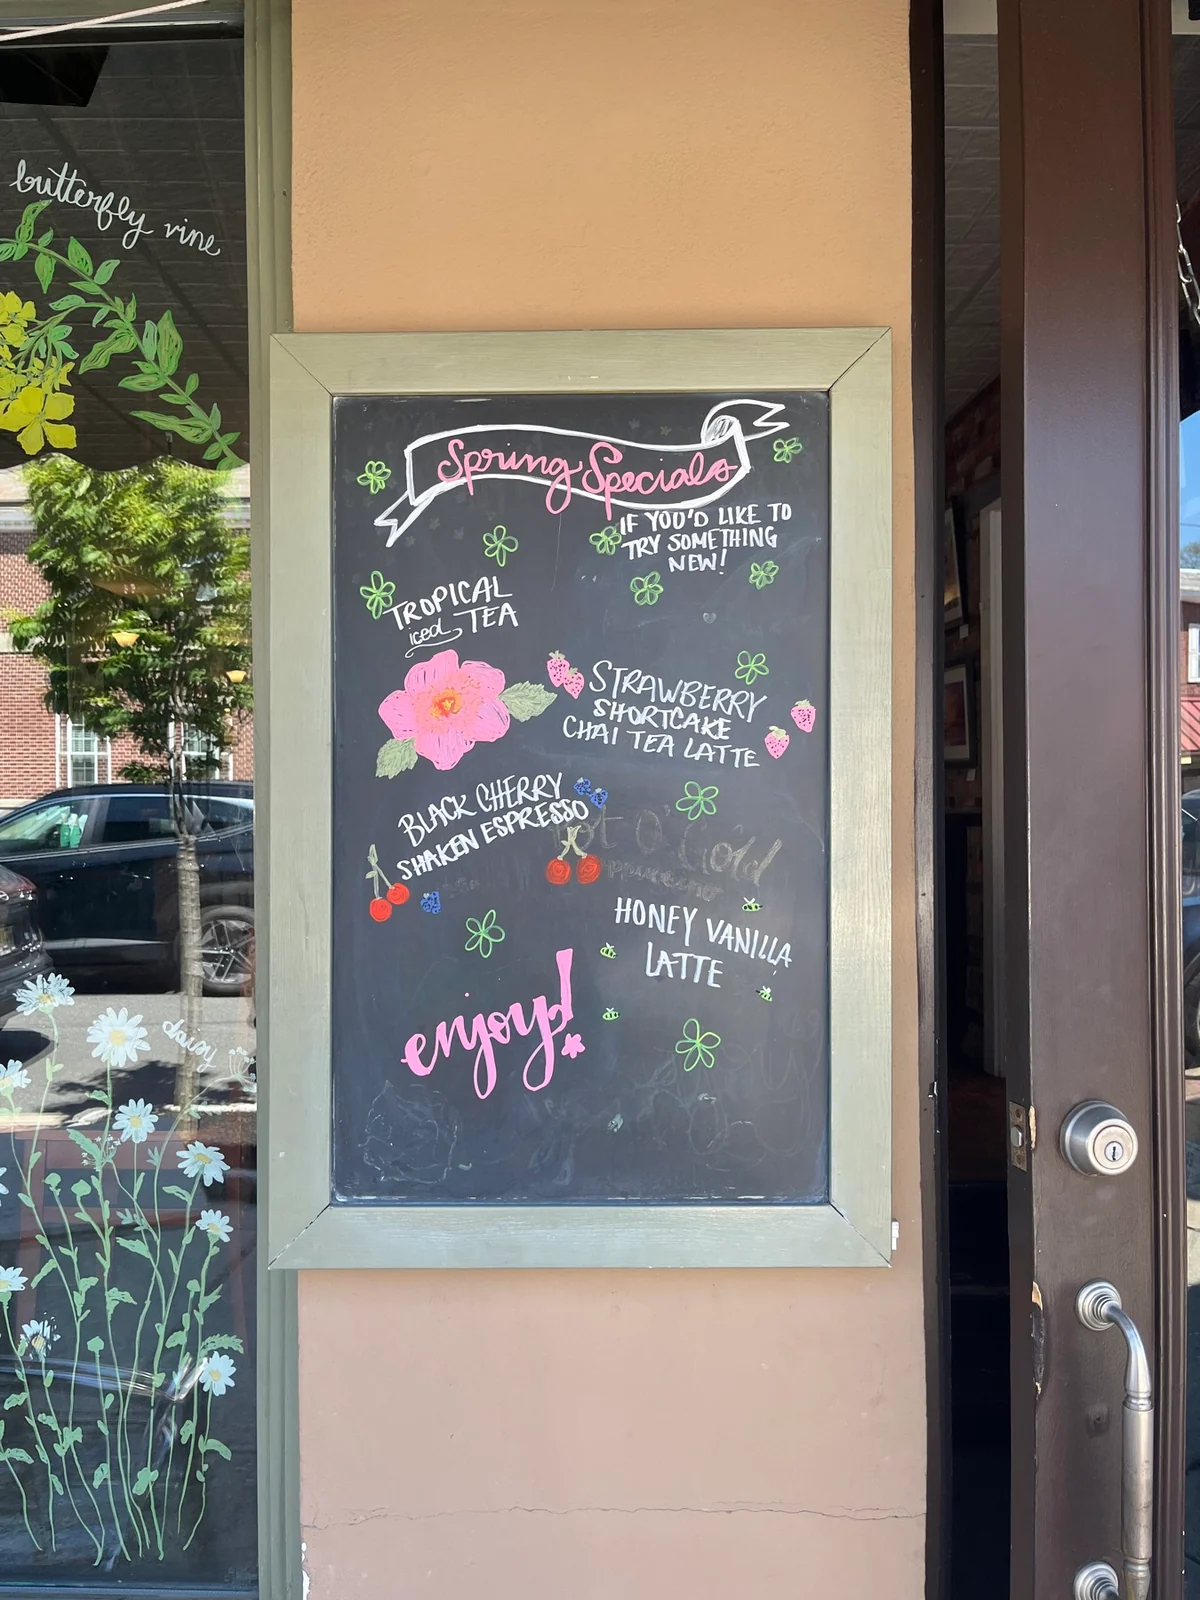 butterfly vine
Spring Specials
IF YOU'D LIKE TO
TRY SOMETHING
NEW!
TROPICAL
iced TEA
STRAWBERRY
SHORTCAKE
CHAI TEA LATTE
BLACK CHERRY
SHAKEN ESPRESSO
Pot O' Gold
HONEY VANILLA
LATTE
enjoy!
daisy